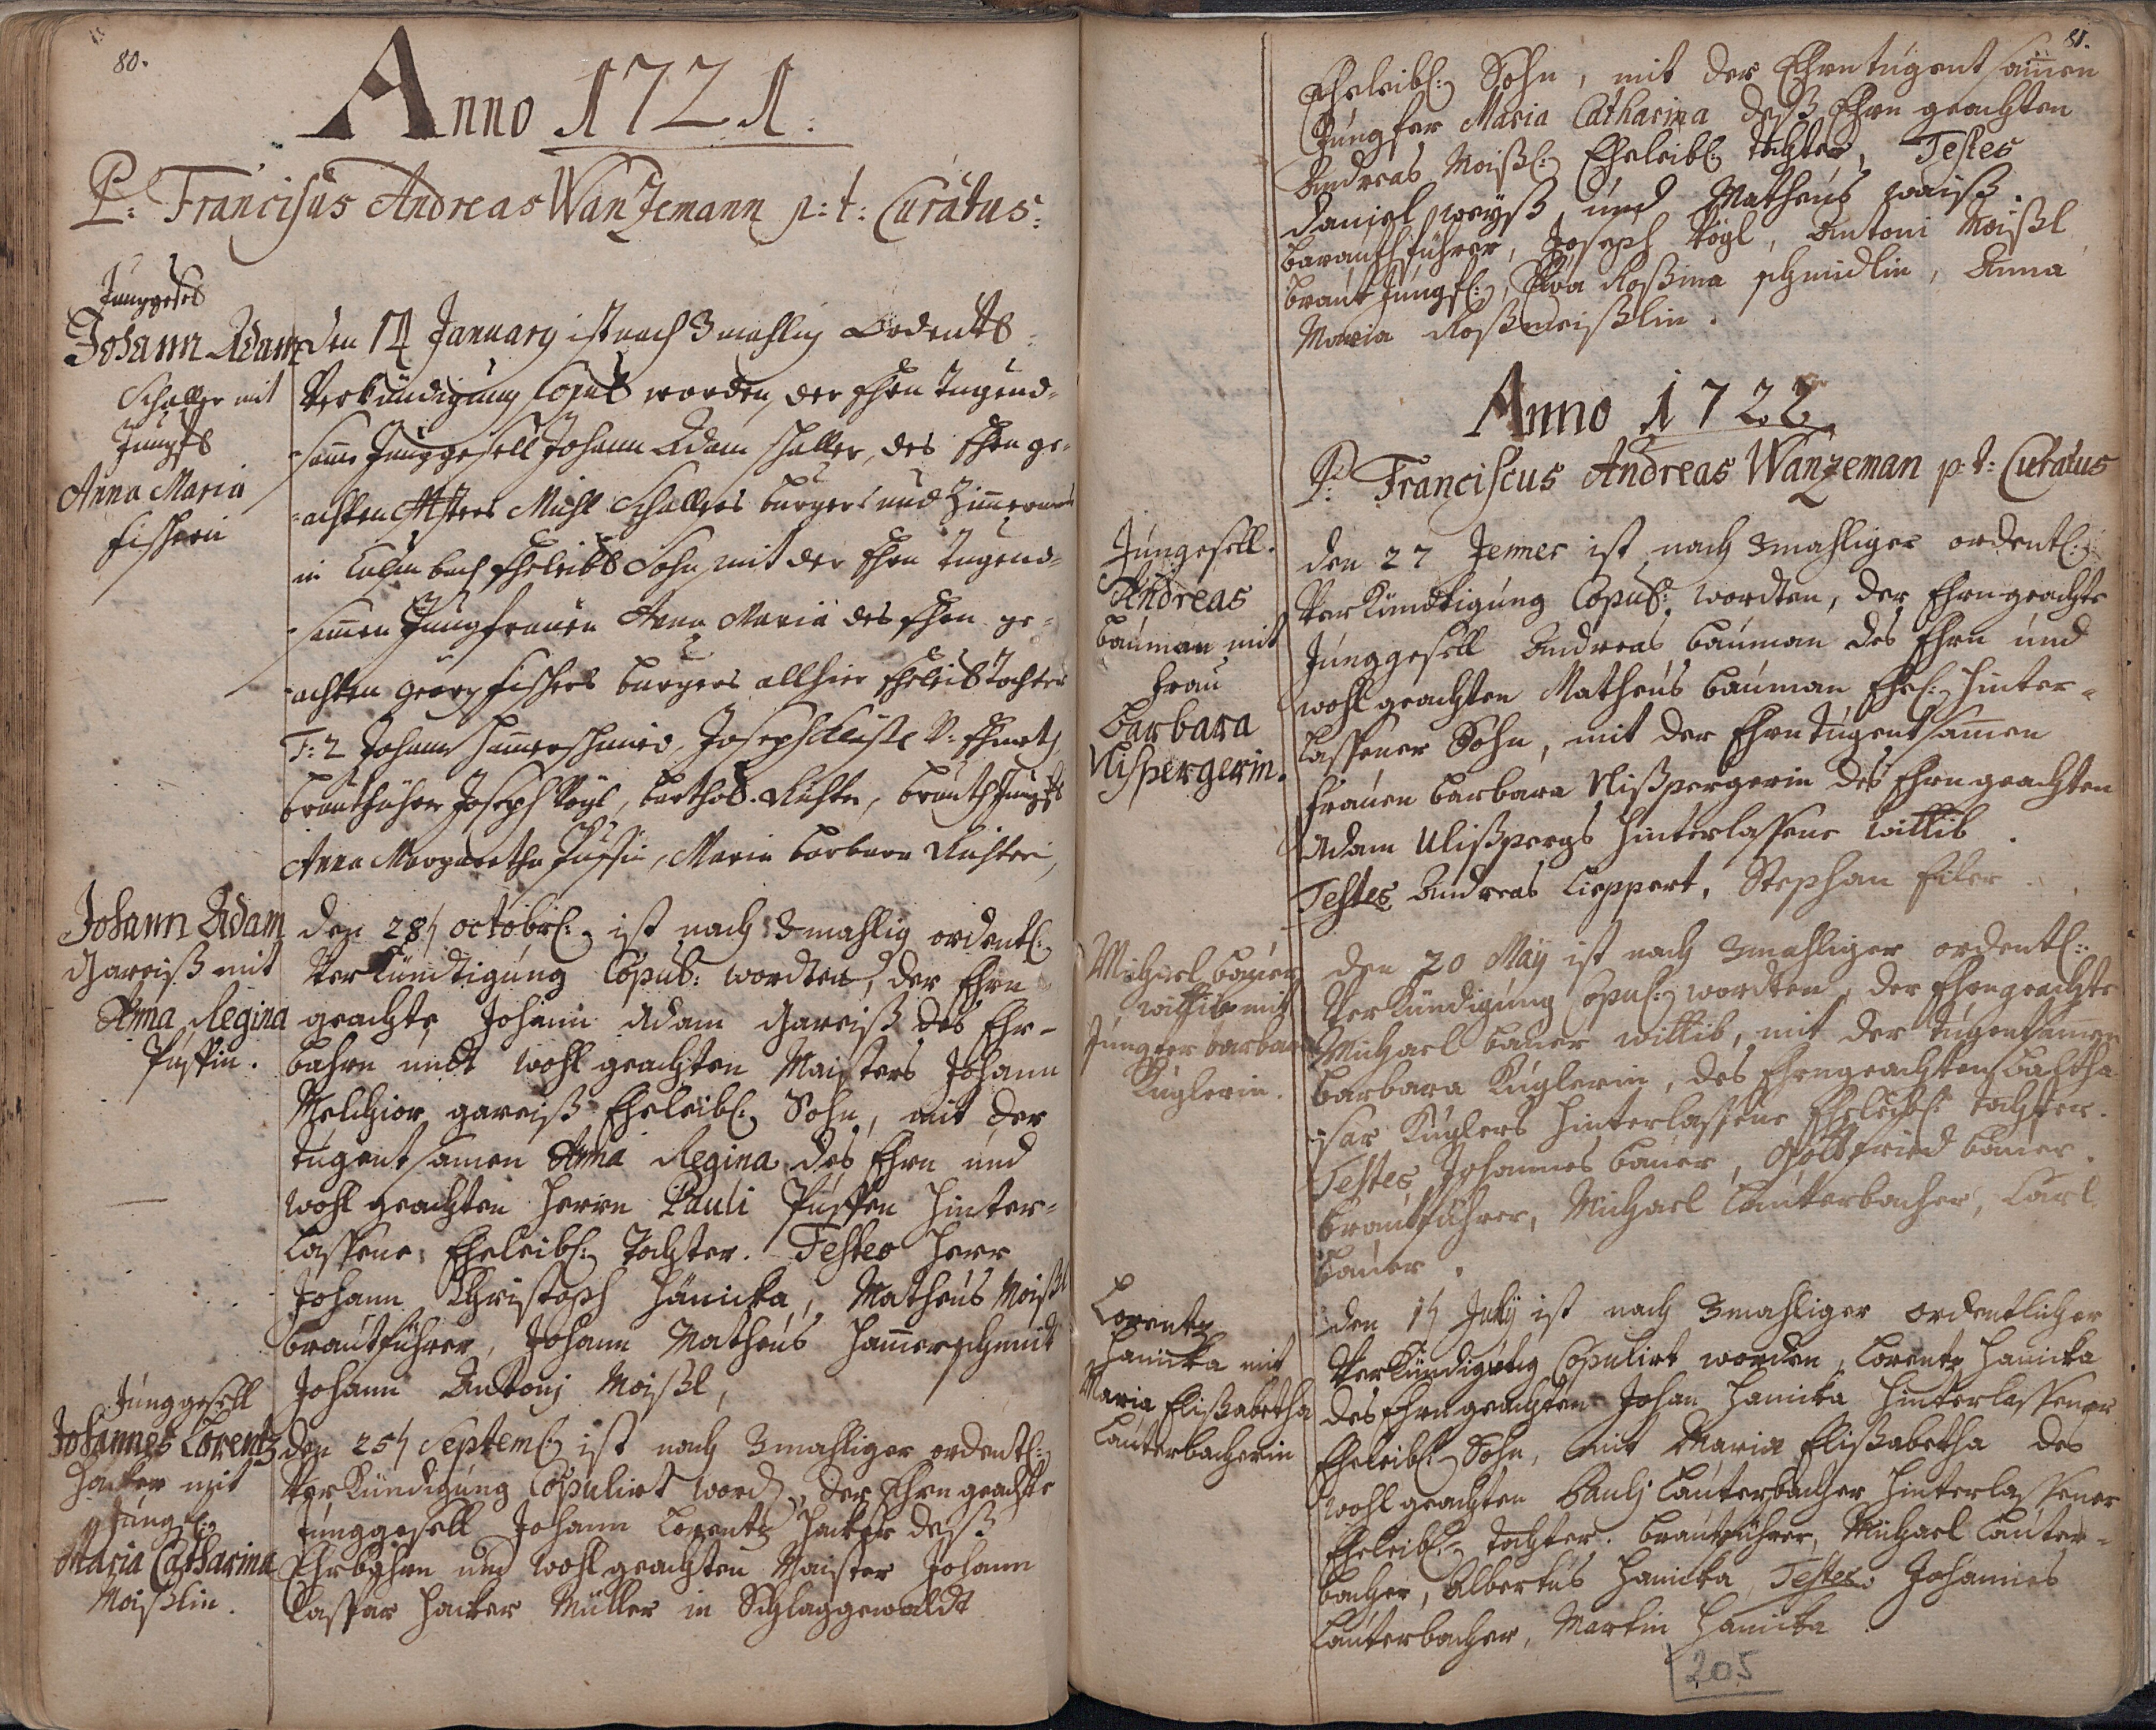 80.
Anno 1721.
P: Francisus Andreas Wanzemann p: t: Curatus:
Junggesel
Johann Adam
Schaller mit
Jungf
Anna Maria
fischerin
den 14 January ist nach 3 mahlig Ordentl
Verkündigung Copul worden, der Ehren tugend-
same Junggesell Johann Adam Schaller, des Ehren ge-
achten Msters Michl Schallers burgers und Zimerman
in Culmbach Eheleibl Sohn, mit der Ehren tugend-
samen Jungfrauen Anna Maria des Ehren ge-
achten georg fischers burgers allhier Eheleibl Tochter
T: 2 Johann Hamerschmied, Joseph
brautführer Joseph Vögl, barthol. Richter, brauth Jungf
Anna Margaretha Pussin, Maria barbara Richteri,
Johann Adam
Gareiß mit
Anna Regina
Pussin.
den 28t octobr: ist nach 3mahlig ordentl:
Verkündtigung Copul: wordten, der Ehrn
geachte Johann Adam Gareiß des Ehr-
bahrn undt wohl geachten Maisters Johann
Melchior gareiß Eheleibl: Sohn, mit der
tugentsamen Anna Regina des Ehrn und
wohl geachten Herrn Pauli Pussen hinter-
lassene Eheleibl: Tochter. Testes Herr
Johann Christoph Hänicka, Matheus Moißl
brautführer, Johann Matheus Hamerschmidt
Johann Antonj Moißl,
Junggesell
Johannes Lorentz
Hacker mit
Jungf:
Maria Catharina
Moißlin.
den 25t Septem: ist nach 3mahliger ordentl:
Verkündigung Copulirt word, der Ehrn geachte
Junggesell Johann Lorentz Hacker deß
Ehrbahrn und wohl geachten Maister Johann
Caspar Hacker Müller in Schlaggewaldt
81.
Eheleibl: Sohn, mit der Ehrntugentsamen
Jungfer Maria Catharina deß Ehrn geachten
Andreas Moißl: Eheleibl: tochter, Testes
Daniel weyß und Matheus waiß.
brauthführer, Joseph Vögl, Antoni Moißl
braut Jungf:, Eva Roßina schmidlin, Anna
Maria Roßmeißlin.
Anno 1722
P: Franciscus Andreas Wanzeman p: t: Curatus
Jungesell.
Andreas
bauman mit
frau
Barbara
Nispergerin.
den 27 Jenner ist nach 3mahliger ordentl:
Verkündtigung Copul: wordten, der Ehrngeachte
Junggesell Andreas bauman des Ehrn und
wohl geachten Matheus bauman Ehel: hinter-
lassener Sohn, mit der Ehrntugentsamen
frauen barbara Nißpergerin des Ehrngeachten
Adam Nißpergs hinterlassene Wittib.
Testes Andreas Lieppert, Stephan Eiler
Michael bauer
wittib mit
Jungfer barbara
Kuglerin.
den 20 May ist nach 3mahliger ordentl:
Verkündigung Copul: wordten, der Ehrngeachte
Michael bauer wittib, mit der tugentsamen
barbara Kuglerin, des Ehrngeachten baltha
sar Kuglers hinterlassene Eheleibl: tochter.
Testes Johannes bauer, Gottfried bauer.
brautführer, Michael Lauterbacher, Carl
bauer.
Lorentz
Hanicka mit
Maria Elißabetha
Lauterbacherin
den 1t July ist nach 3mahliger ordentlicher
Verkündigung Copulirt worden, Lorentz Hanicka
des Ehrngeachten Johan Hanicka hinterlassener
Eheleibl: Sohn, mit Maria Elißabetha des
wohl geachten Paulj Lauterbacher hinterlassener
Eheleibl: tochter. brautführer, Michael Lauter-
bacher, Albertus Hanicka, Testes Johannes
Lauterbacher, Martin Hanicka
205